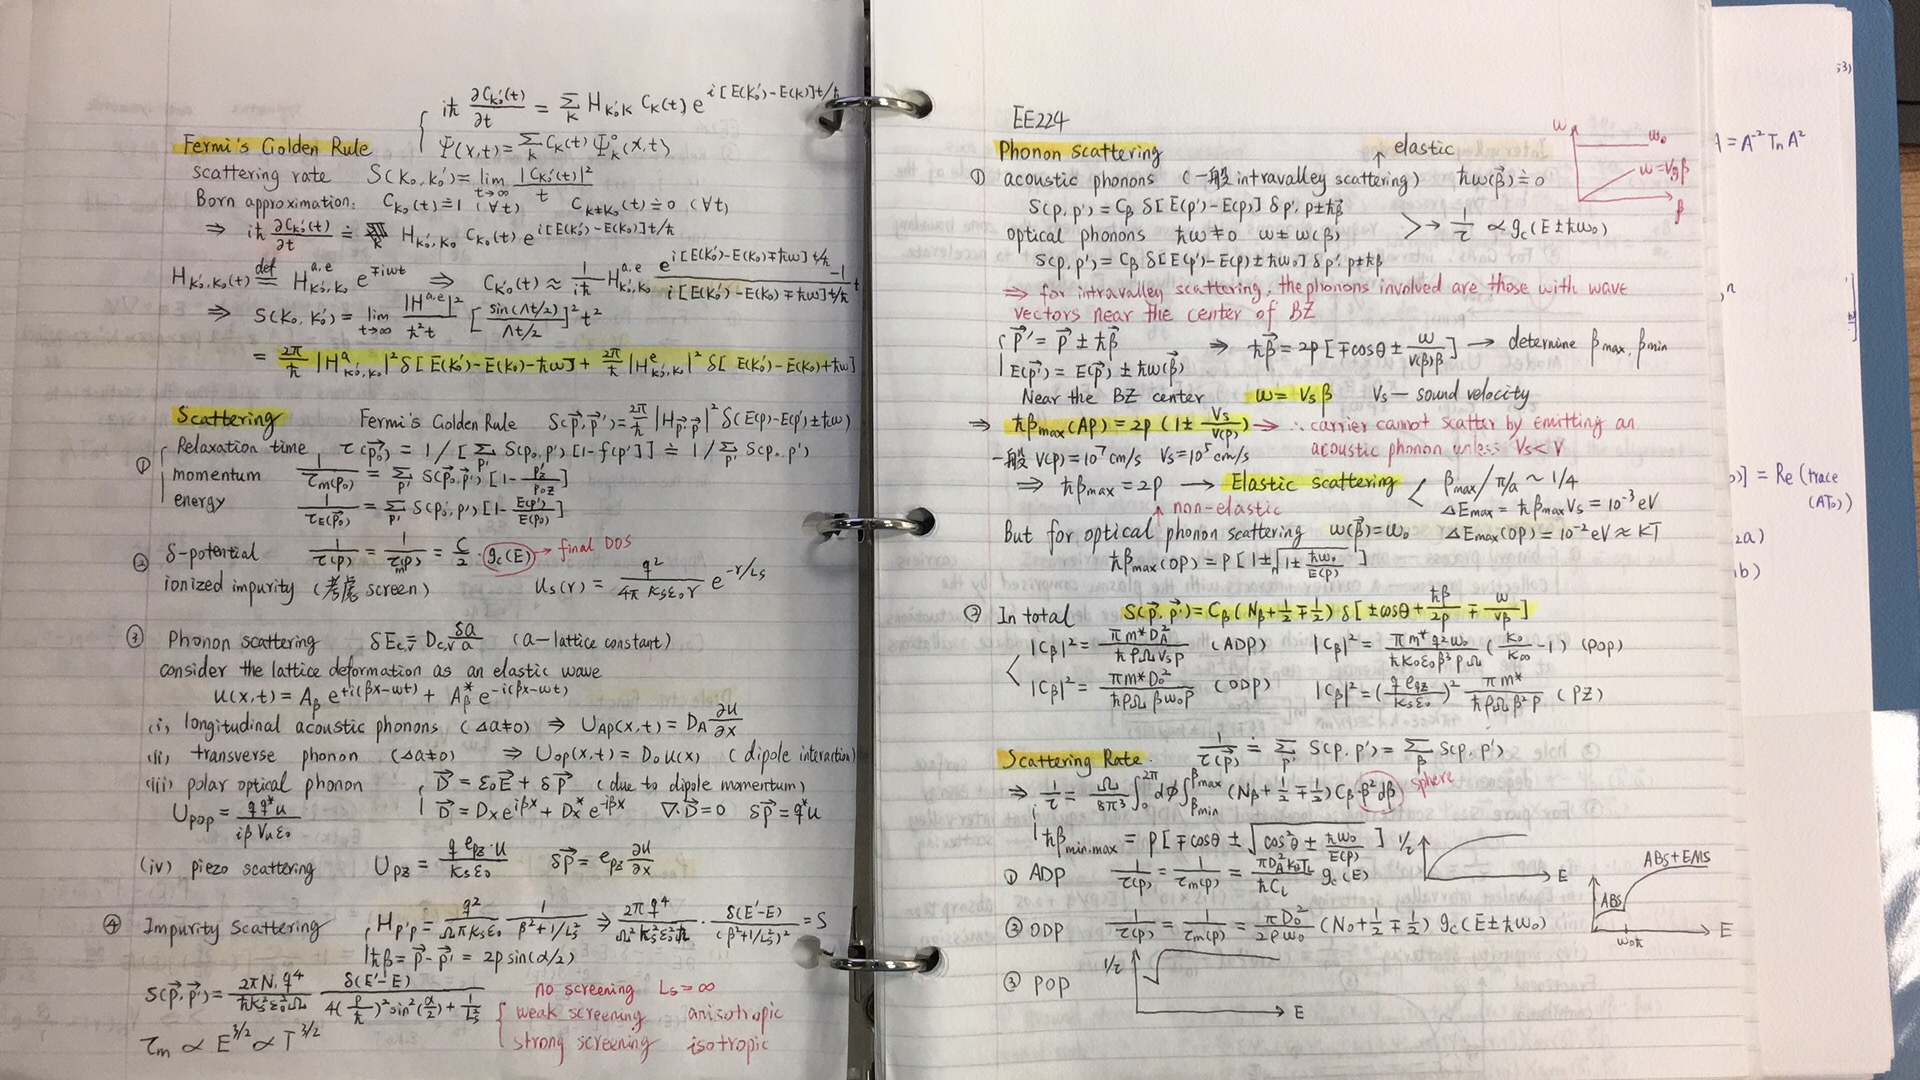 iħ ∂C_{K₀'}(t)/∂t = Σ_K H_{K₀'K} C_K(t) e^{i[E(K₀')-E(K)]t/ħ}
Fermi's Golden Rule
Ψ(x,t) = Σ_K C_K(t) Ψ_K^0(x,t)
scattering rate S(K₀,K₀') = lim_{t→∞} |C_{K₀'}(t)|²/t
Born approximation: C_{K₀}(t)≐1 (∀t) C_{K≠K₀}(t)≐0 (∀t)
⇒ iħ ∂C_{K₀'}(t)/∂t ≐ H_{K₀',K₀} C_{K₀}(t) e^{i[E(K₀')-E(K₀)]t/ħ}
H_{K₀',K₀}(t) =^{def} H^{a,e}_{K₀',K₀} e^{∓iωt} ⇒ C_{K₀'}(t) ≈ 1/(iħ) H^{a,e}_{K₀',K₀} (e^{i[E(K₀')-E(K₀)∓ħω]t/ħ} -1)/(i[E(K₀')-E(K₀)∓ħω]t/ħ) t
⇒ S(K₀,K₀') = lim_{t→∞} |H^{a,e}|²/(ħ²t) [sin(Λt/2)/(Λt/2)]² t²
= 2π/ħ |H^a_{K₀',K₀}|² δ[E(K₀')-E(K₀)-ħω] + 2π/ħ |H^e_{K₀',K₀}|² δ[E(K₀')-E(K₀)+ħω]
Scattering Fermi's Golden Rule S(p⃗,p⃗') = 2π/ħ |H_{p⃗'p⃗}|² δ(E(p)-E(p')±ħω)
① Relaxation time τ(p₀⃗) = 1/[Σ_{p'} S(p₀,p')[1-f(p')]] ≐ 1/Σ_{p'} S(p₀,p')
momentum 1/τ_m(p₀) = Σ_{p'} S(p₀⃗,p⃗') [1- p_z'/p_{0z}]
energy 1/τ_E(p₀⃗) = Σ_{p'} S(p₀',p') [1- E(p')/E(p₀)]
② δ-potential 1/τ(p) = 1/τ_m(p) = C/2 · g_c(E) → final DOS
ionized impurity (考虑 screen) U_s(r) = q²/(4π K_sε₀r) e^{-r/L_s}
③ Phonon scattering δE_{c,v} = D_{c,v} δa/a (a-lattice constant)
consider the lattice deformation as an elastic wave
u(x,t) = A_β e^{+i(βx-ωt)} + A_β^* e^{-i(βx-ωt)}
(i) longitudinal acoustic phonons (Δa≠0) ⇒ U_{AP}(x,t) = D_A ∂u/∂x
(ii) transverse phonon (Δa≠0) ⇒ U_{op}(x,t) = D₀u(x) (dipole interaction)
(iii) polar optical phonon D⃗ = ε₀E⃗ + δp⃗ (due to dipole momentum)
U_{pop} = qq*u/(iβV_uε₀) D⃗ = D_x e^{iβx} + D_x^* e^{-iβx} ∇·D⃗=0 δp⃗=q*u
(iv) piezo scattering U_{pz} = q e_{pz}·u/(K_sε₀) δp⃗ = e_{pz} ∂u/∂x
④ Impurity Scattering H_{p'p} = q²/(ΩπK_sε₀) 1/(β²+1/L_s²) ⇒ 2πq⁴/(Ω²K_s²ε₀²ħ) · δ(E'-E)/(β²+1/L_s²)² = S
ħβ = p⃗-p⃗' = 2p sin(α/2)
S(p⃗,p⃗') = 2πN_I q⁴/(ħK_s²ε₀²Ω) δ(E'-E)/(4(p/ħ)² sin²(α/2) + 1/L_s²)
no screening L_s=∞
weak screening anisotropic
strong screening isotropic
τ_m ∝ E^{3/2} ∝ T^{3/2}
EE224
Phonon scattering
elastic
① acoustic phonons (一般intravalley scattering) ħω(β⃗)≐0
S(p,p') = C_β δ[E(p')-E(p)] δ p', p±ħβ⃗
optical phonons ħω≠0 ω≠ω(β)
> → 1/τ ∝ g_c(E±ħω₀)
S(p,p') = C_β δ[E(p')-E(p)±ħω₀] δ p', p±ħβ
ω ω₀ ω=V_gβ β
⇒ for intravalley scattering, the phonons involved are those with wave
vectors near the center of BZ
p⃗' = p⃗ ± ħβ⃗ ⇒ ħβ⃗ = 2p[∓cosθ ± ω/(v(β)β)] → determine β_max, β_min
E(p⃗') = E(p⃗) ± ħω(β⃗)
Near the BZ center ω=V_sβ V_s — sound velocity
⇒ ħβ_max(AP) = 2p(1± V_s/V(p)) → ∴ carrier cannot scatter by emitting an
acoustic phonon unless V_s<V
一般 V(p)=10⁷cm/s V_s=10⁵cm/s
⇒ ħβ_max = 2p → Elastic scattering < β_max/π/a ~ 1/4
ΔE_max = ħβ_max V_s = 10⁻³eV
non-elastic
But for optical phonon scattering ω(β⃗)=ω₀ ΔE_max(OP) = 10⁻²eV ≈ KT
ħβ_max(OP) = p[1±√(1± ħω₀/E(p))]
② In total S(p⃗,p⃗') = C_β(N_β+½∓½) δ[±cosθ + ħβ/2p ∓ ω/vβ]
|C_β|² = πm*D_A²/(ħρΩV_s p) (ADP) |C_β|² = πm*q²ω₀/(ħK₀ε₀β³pΩ) (K₀/K_∞ -1) (POP)
|C_β|² = πm*D₀²/(ħρΩβω₀p) (ODP) |C_β|² = (q e_{pz}/K_sε₀)² πm*/(ħρΩβ²p) (PZ)
Scattering Rate. 1/τ(p⃗) ≐ Σ_{p'} S(p,p') = Σ_β S(p,p')
⇒ 1/τ = Ω/8π³ ∫₀^{2π} dϕ ∫_{β_min}^{β_max} (N_β+½∓½) C_β·β²dβ sphere
ħβ_{min,max} = p[∓cosθ ± √(cos²θ ± ħω₀/E(p))]
① ADP 1/τ(p) = 1/τ_m(p) = πD_A²k₀T_L/(ħC_l) g_c(E)
1/τ E
ABS+EMS
ABS
ω₀ħ E
② ODP 1/τ(p) = 1/τ_m(p) = πD₀²/(2ρω₀) (N₀+½∓½) g_c(E±ħω₀)
③ POP 1/τ E
;3)
= A⁻² T_n A²
] = Re (trace
(AT₀))
2a)
1b)